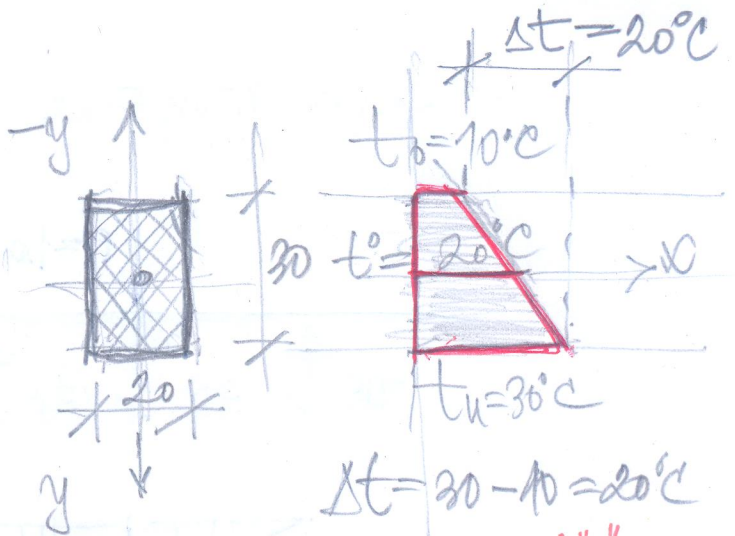 Δt=20°C
-y
to=10°C
30
t°=20°C
x
20
tu=30°C
y
Δt=30-10=20°C